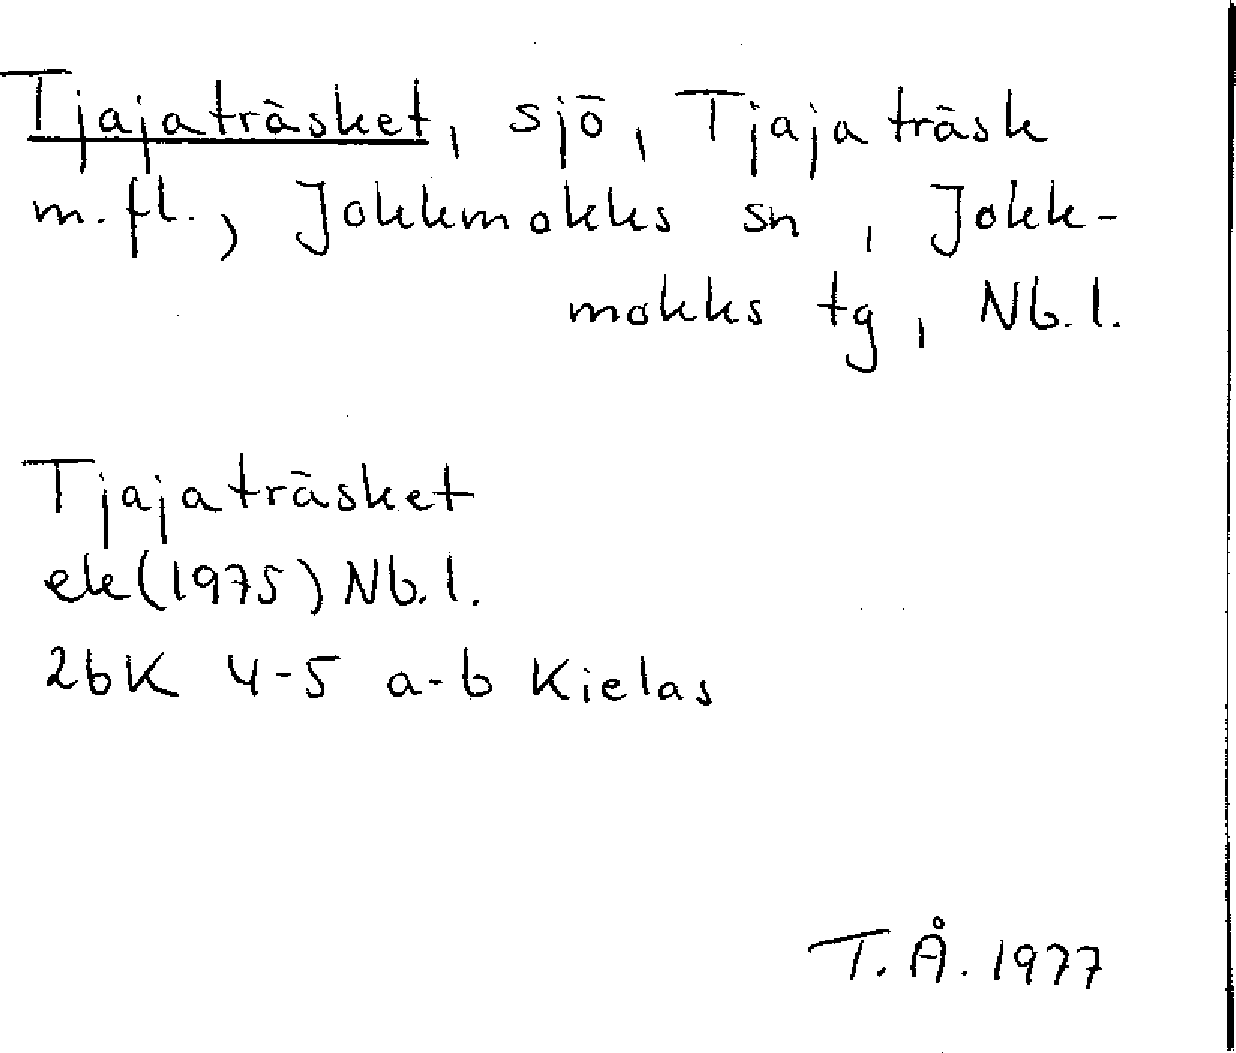 Tjajaträsket, sjö, Tjajaträsk
m.fl., Jokkmokks sn, Jokk-
mokks tg, Nb.l.
Tjajaträsket
ek (1975) Nb.l.
26K 4-5 a-b Kielas
T.Å. 1977